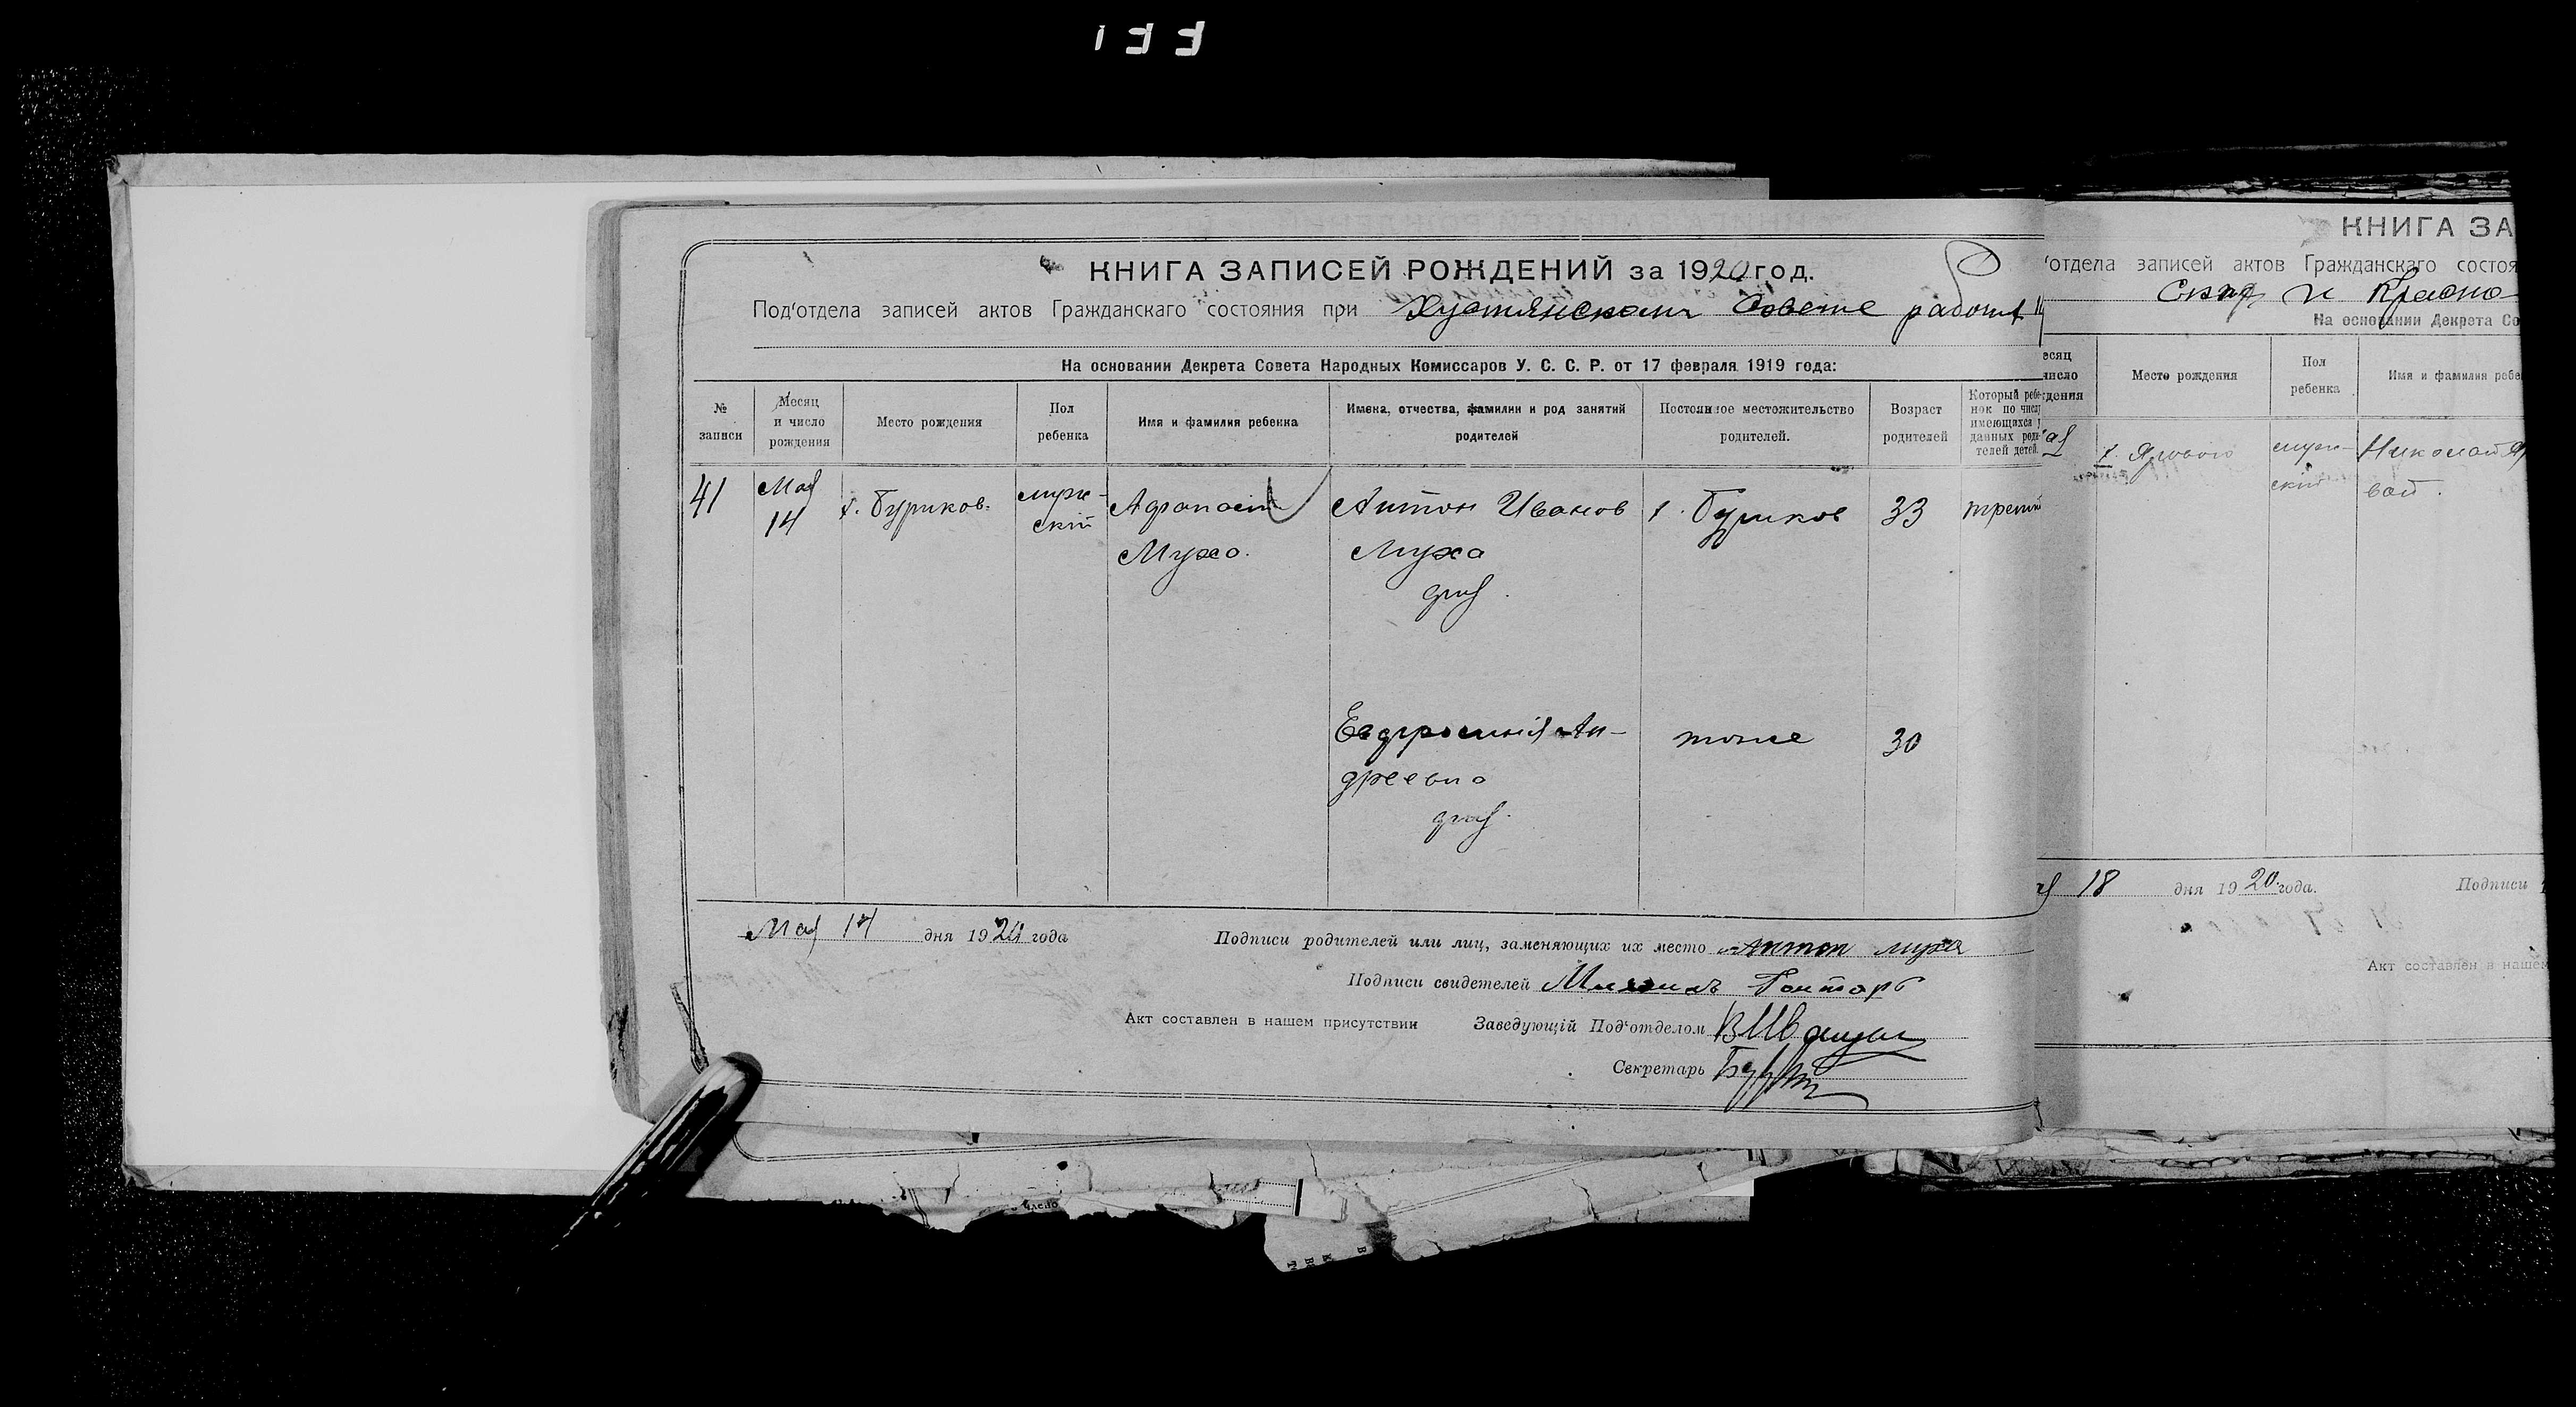 КНИГА ЗАПИСЕЙ РОЖДЕНИЙ за 1920 год.
Под'отдела записей актов Гражданскаго состояния при Хустянском Совете рабоч.
На основании Декрета Совета Народных Комиссаров У. С. С. Р. от 17 февраля 1919 года:
№ записи
Месяц и число рождения
Место рождения
Пол ребенка
Имя и фамилия ребенка
Имена, отчества, фамилии и род занятий родителей
Постоянное местожительство родителей.
Возраст родителей
Который ребенок по числу имеющихся у данных родителей детей.
41
Мая 14
х. Буриков.
мужскій
Афанасій Муха.
Антон Иванов
Муха
х. Буриков
33
третій
Евфросинія Андреевна
тоже
30
Мая 14 дня 1920 года
Подписи родителей или лиц, заменяющих их место Антон муха
Подписи свидетелей Михаилъ Гонтарь
Акт составлен в нашем присутствии Заведующій Под'отделом
Секретарь
КНИГА ЗА
'отдела записей актов Гражданскаго состоя
и Красно-
На основании Декрета Со
есяц
число
ждения
Место рождения
Пол ребенка
Имя и фамилия ребе
мужскій
Николай
18 дня 1920 года.
Подписи
Акт составлен в нашем